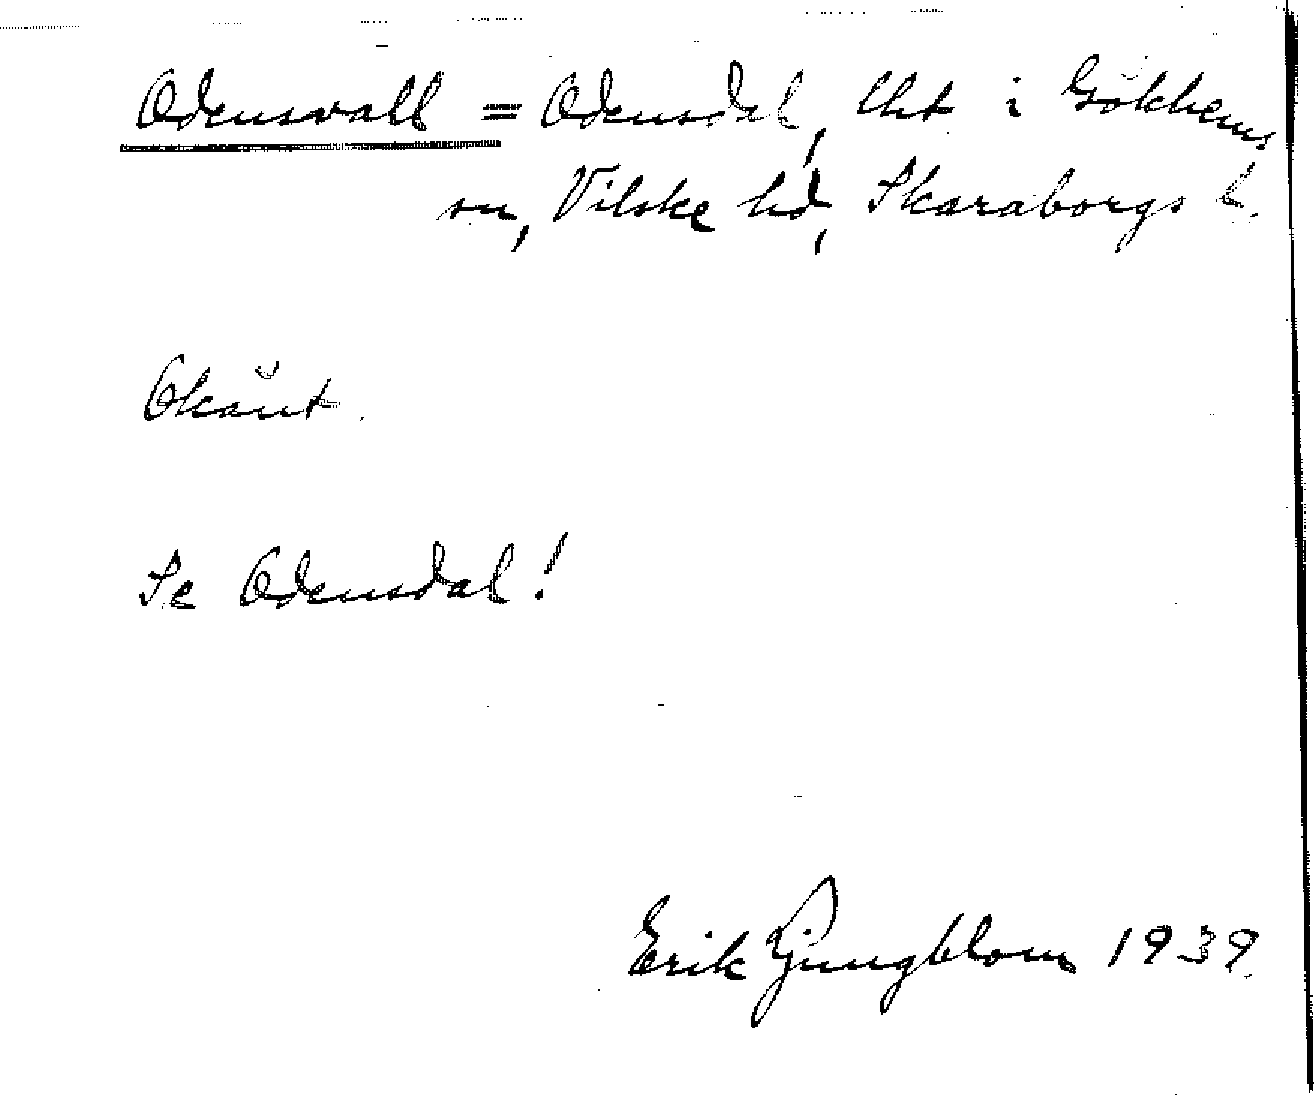 Odensvall = Odensdal, lht i Gökhems
sn, Vilske hd, Skaraborgs l.
Okänt.
Se Odensdal!
Erik Ljungblom 1939.